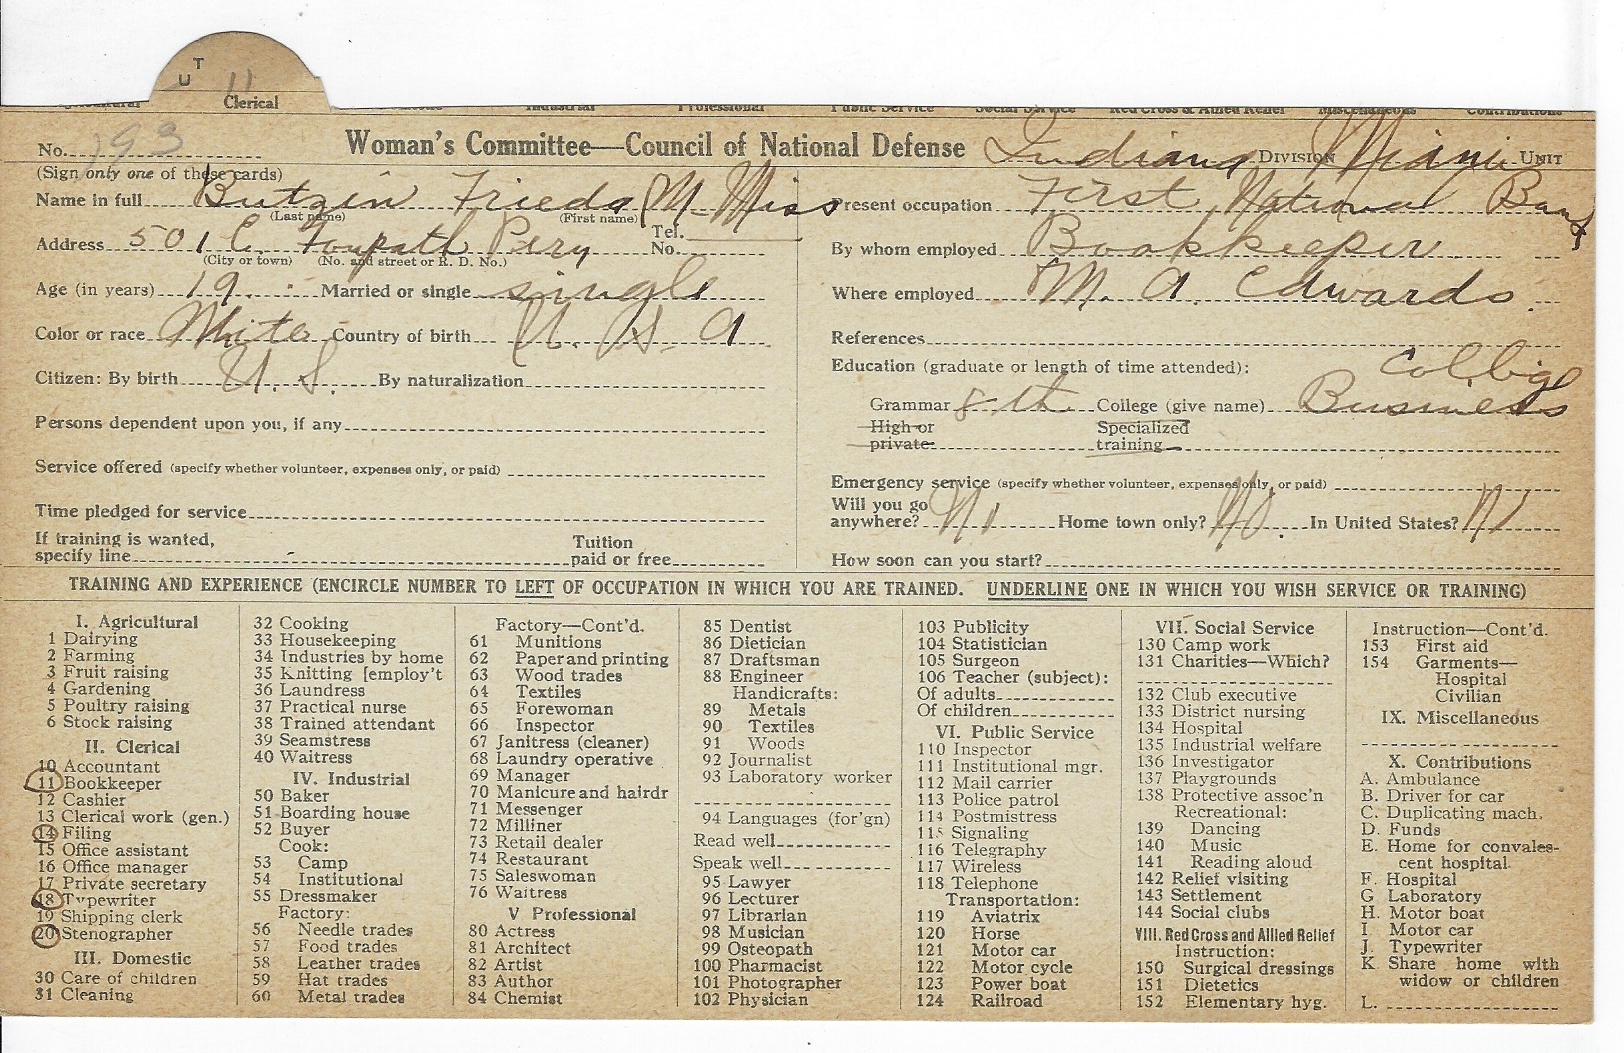 UT 11
Clerical
No. 193
Woman's Committee—Council of National Defense Indiana DIVISION Miami UNIT
(Sign only one of these cards)
Name in full Butzin Frieda M. Miss
(Last name) (First name)
Address 501 E. Towpath Peru Tel. No.
(City or town) (No. and street or R. D. No.)
Age (in years) 19 Married or single single
Color or race White Country of birth U. S. A
Citizen: By birth U. S. By naturalization
Persons dependent upon you, if any
Service offered (specify whether volunteer, expenses only, or paid)
Time pledged for service
If training is wanted, specify line Tuition paid or free
Present occupation First National Bank
By whom employed Bookkeeper
Where employed M. A. Edwards
References
Education (graduate or length of time attended): College
Grammar 8th College (give name) Business
High or private Specialized training
Emergency service (specify whether volunteer, expenses only, or paid)
Will you go anywhere? No Home town only? No. In United States? No
How soon can you start?
TRAINING AND EXPERIENCE (ENCIRCLE NUMBER TO LEFT OF OCCUPATION IN WHICH YOU ARE TRAINED. UNDERLINE ONE IN WHICH YOU WISH SERVICE OR TRAINING)
I. Agricultural
1 Dairying
2 Farming
3 Fruit raising
4 Gardening
5 Poultry raising
6 Stock raising
II. Clerical
10 Accountant
11 Bookkeeper
12 Cashier
13 Clerical work (gen.)
14 Filing
15 Office assistant
16 Office manager
17 Private secretary
18 Typewriter
19 Shipping clerk
20 Stenographer
III. Domestic
30 Care of children
31 Cleaning
32 Cooking
33 Housekeeping
34 Industries by home
35 Knitting [employ't
36 Laundress
37 Practical nurse
38 Trained attendant
39 Seamstress
40 Waitress
IV. Industrial
50 Baker
51 Boarding house
52 Buyer
Cook:
53 Camp
54 Institutional
55 Dressmaker
Factory:
56 Needle trades
57 Food trades
58 Leather trades
59 Hat trades
60 Metal trades
Factory—Cont'd.
61 Munitions
62 Paper and printing
63 Wood trades
64 Textiles
65 Forewoman
66 Inspector
67 Janitress (cleaner)
68 Laundry operative
69 Manager
70 Manicure and hairdr
71 Messenger
72 Milliner
73 Retail dealer
74 Restaurant
75 Saleswoman
76 Waitress
V Professional
80 Actress
81 Architect
82 Artist
83 Author
84 Chemist
85 Dentist
86 Dietician
87 Draftsman
88 Engineer
Handicrafts:
89 Metals
90 Textiles
91 Woods
92 Journalist
93 Laboratory worker
94 Languages (for'gn)
Read well
Speak well
95 Lawyer
96 Lecturer
97 Librarian
98 Musician
99 Osteopath
100 Pharmacist
101 Photographer
102 Physician
103 Publicity
104 Statistician
105 Surgeon
106 Teacher (subject):
Of adults
Of children
VI. Public Service
110 Inspector
111 Institutional mgr.
112 Mail carrier
113 Police patrol
114 Postmistress
115 Signaling
116 Telegraphy
117 Wireless
118 Telephone
Transportation:
119 Aviatrix
120 Horse
121 Motor car
122 Motor cycle
123 Power boat
124 Railroad
VII. Social Service
130 Camp work
131 Charities—Which?
132 Club executive
133 District nursing
134 Hospital
135 Industrial welfare
136 Investigator
137 Playgrounds
138 Protective assoc'n
Recreational:
139 Dancing
140 Music
141 Reading aloud
142 Relief visiting
143 Settlement
144 Social clubs
VIII. Red Cross and Allied Relief
Instruction:
150 Surgical dressings
151 Dietetics
152 Elementary hyg.
Instruction—Cont'd.
153 First aid
154 Garments—
Hospital
Civilian
IX. Miscellaneous
X. Contributions
A. Ambulance
B. Driver for car
C. Duplicating mach.
D. Funds
E. Home for convales-
cent hospital.
F. Hospital
G Laboratory
H. Motor boat
I. Motor car
J. Typewriter
K Share home with
widow or children
L.